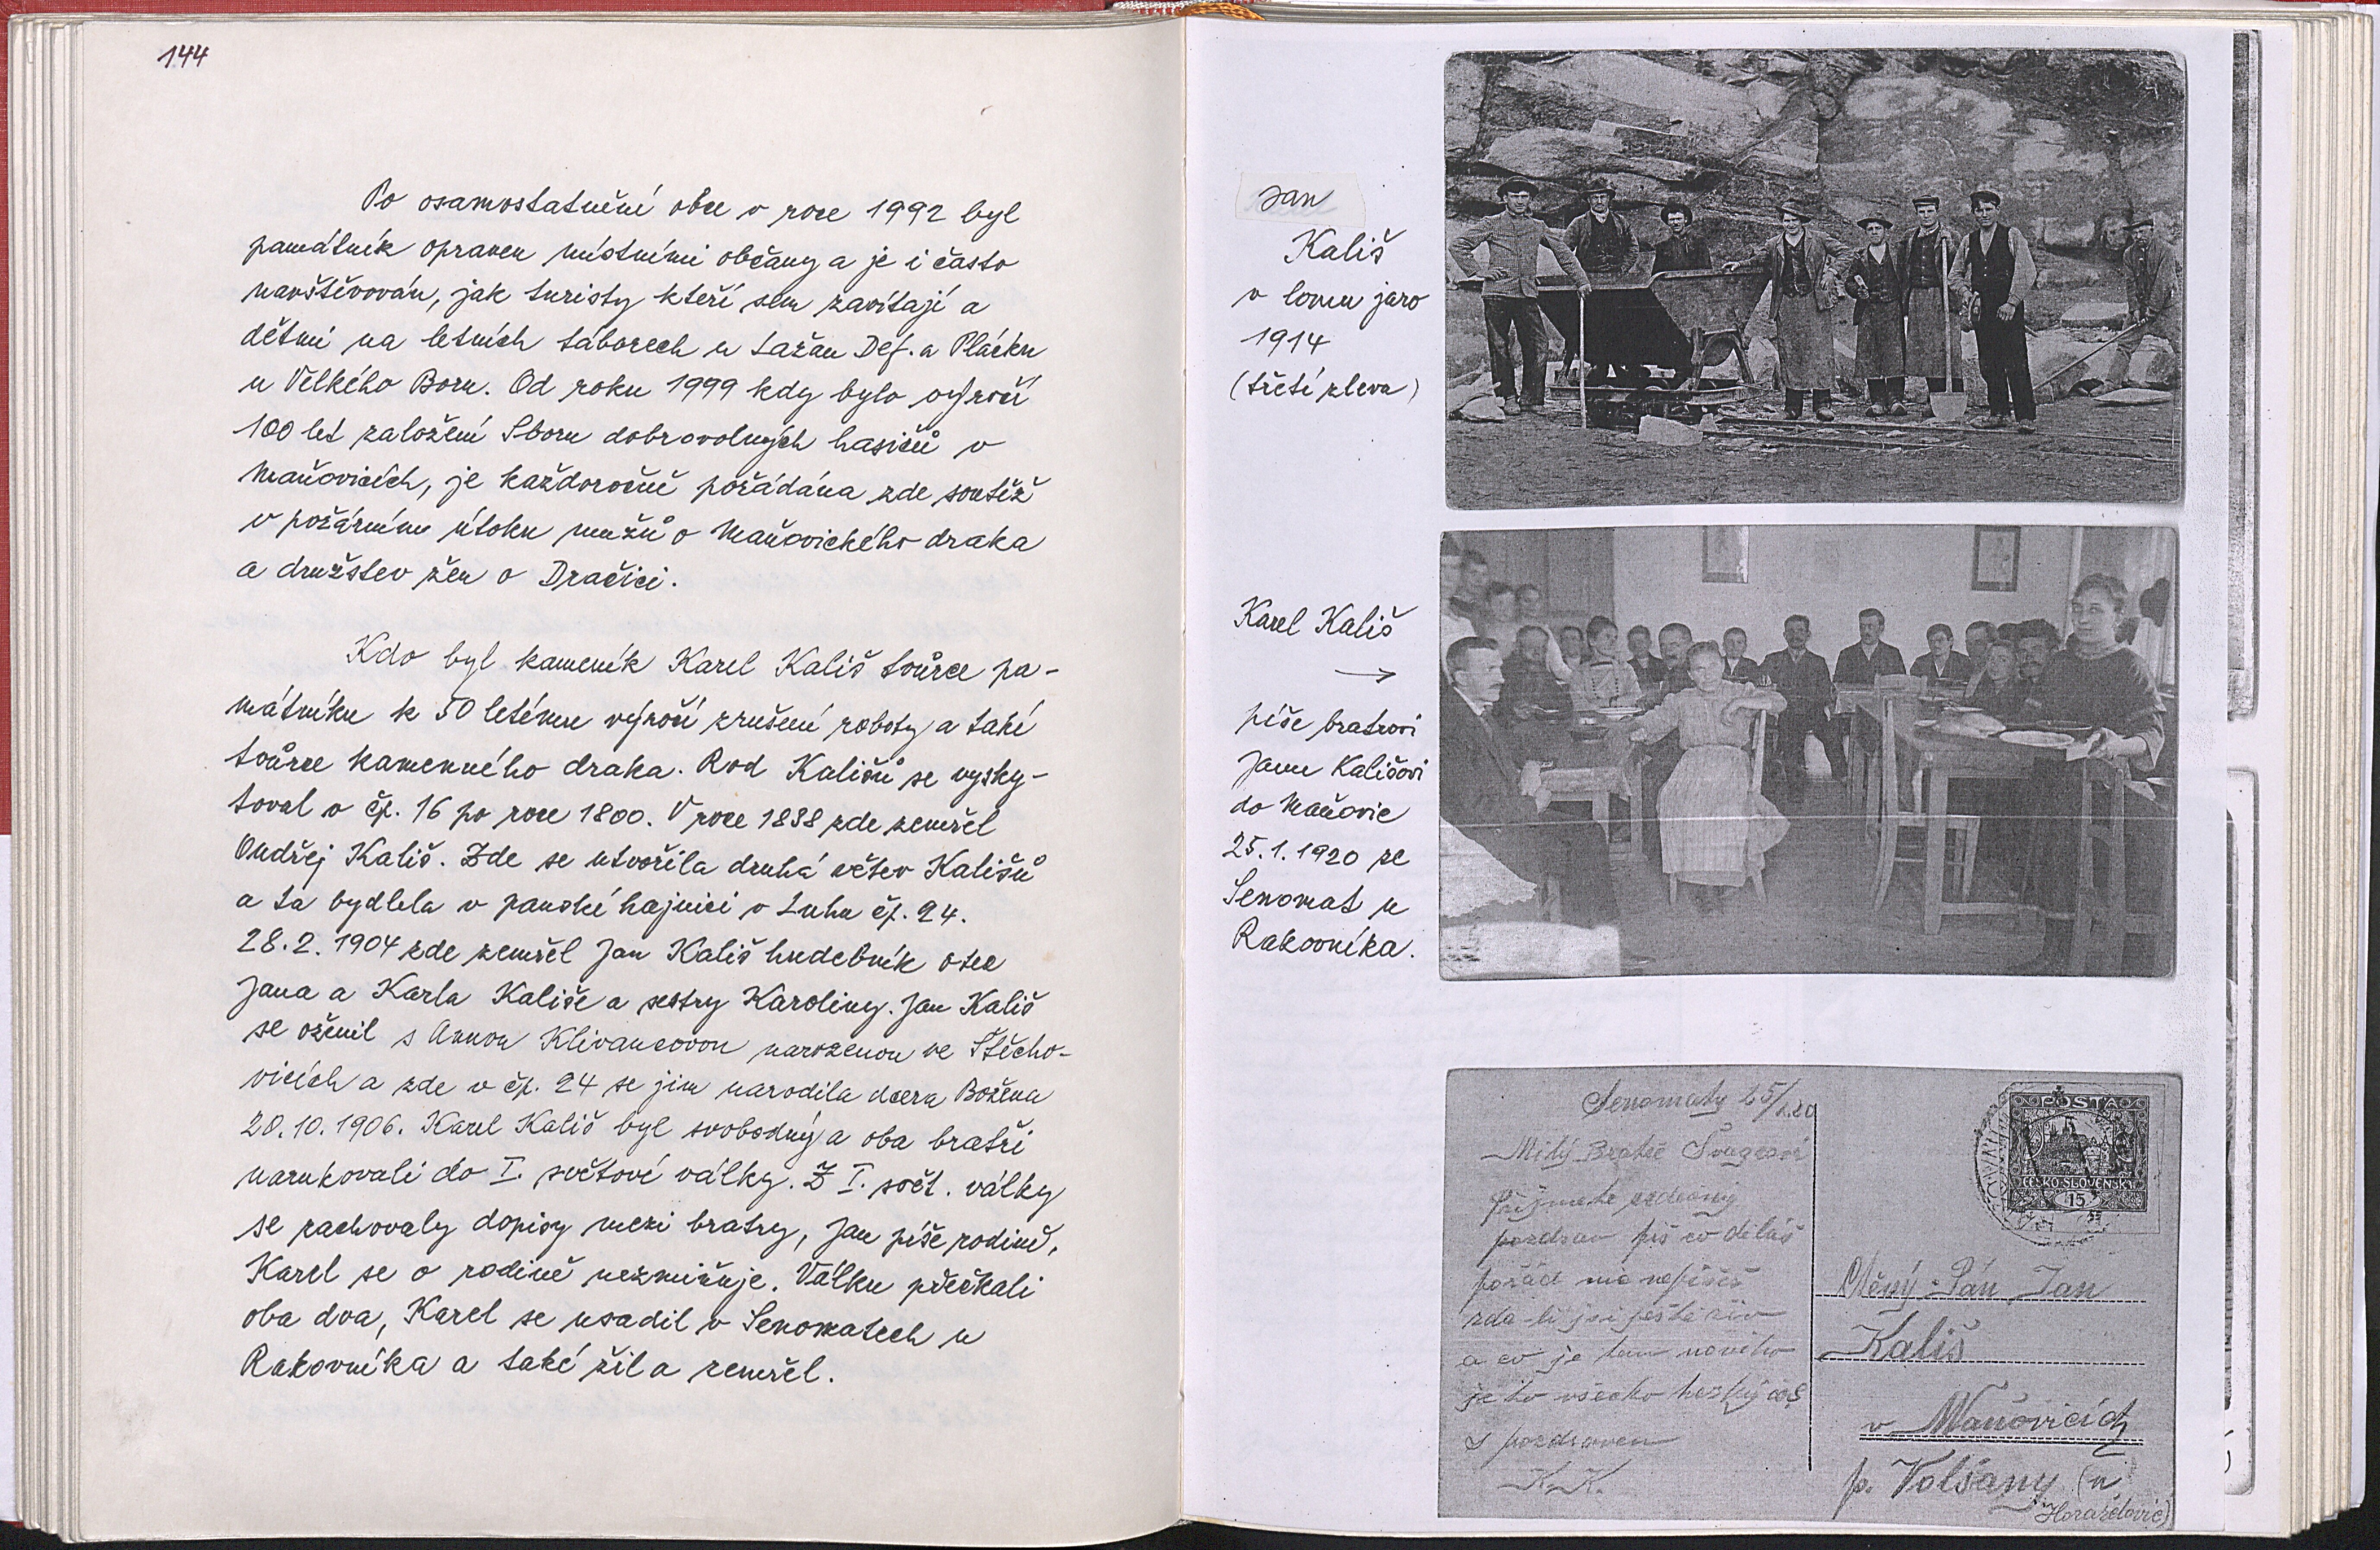 144
Po osamostatnění obce v roce 1992 byl
památník opraven místními občany a je i často
navštěvován, jak turisty kteří sem zavítají a
dětmi na letních táborech u Lažan Def. a Plácku
u Velkého Boru. Od roku 1999 kdy bylo výročí
100 let založení Sboru dobrovolných hasičů v
Maňovicích, je každoročně pořádána zde soutěž
v požárním útoku mužů o Maňovického draka
a družstev žen o Dračici.
Kdo byl kameník Karel Kališ tvůrce pa-
mátníku k 50 letému výročí zrušení roboty a také
tvůrce kamenného draka. Rod Kališů se vysky-
toval v čp. 16 po roce 1800. V roce 1838 zde zemřel
Ondřej Kališ. Zde se utvořila druhá větev Kališů
a ta bydlela v panské hajnici v Luhu čp. 24.
28.2.1904 zde zemřel Jan Kališ hudebník otec
Jana a Karla Kališe a sestry Karoliny. Jan Kališ
se oženil s Annou Klivancovou narozenou ve Střecho-
vicích a zde v čp. 24 se jim narodila dcera Božena
20.10.1906. Karel Kališ byl svobodný a oba bratři
narukovali do I. světové války. Z I. svět. války
se zachovaly dopisy mezi bratry, Jan píše rodině,
Karel se o rodině nezmiňuje. Válku přečkali
oba dva, Karel se usadil v Senomatech u
Rakovníka a také žil a zemřel.
Jan
Kališ
v lomu jaro
1914
(třetí zleva)
Karel Kališ
→
píše bratrovi
Janu Kališovi
do Maňovic
25.1.1920 ze
Senomat u
Rakovníka.
Senomaty 25/1.20
Milý Bratře Švagrová
Přijmete srdečný
pozdrav piš co děláš
pořád mě nepíšeš
zda-li jsi ještě živ
a co je tam nového
je to všecko hezký
S pozdravem
K.K.
POŠTA
ČESKO-SLOVENSKÁ
15
Ctěný Pán Jan
Kališ
v Maňovicích
p. Volšany (u
Horažďovic)